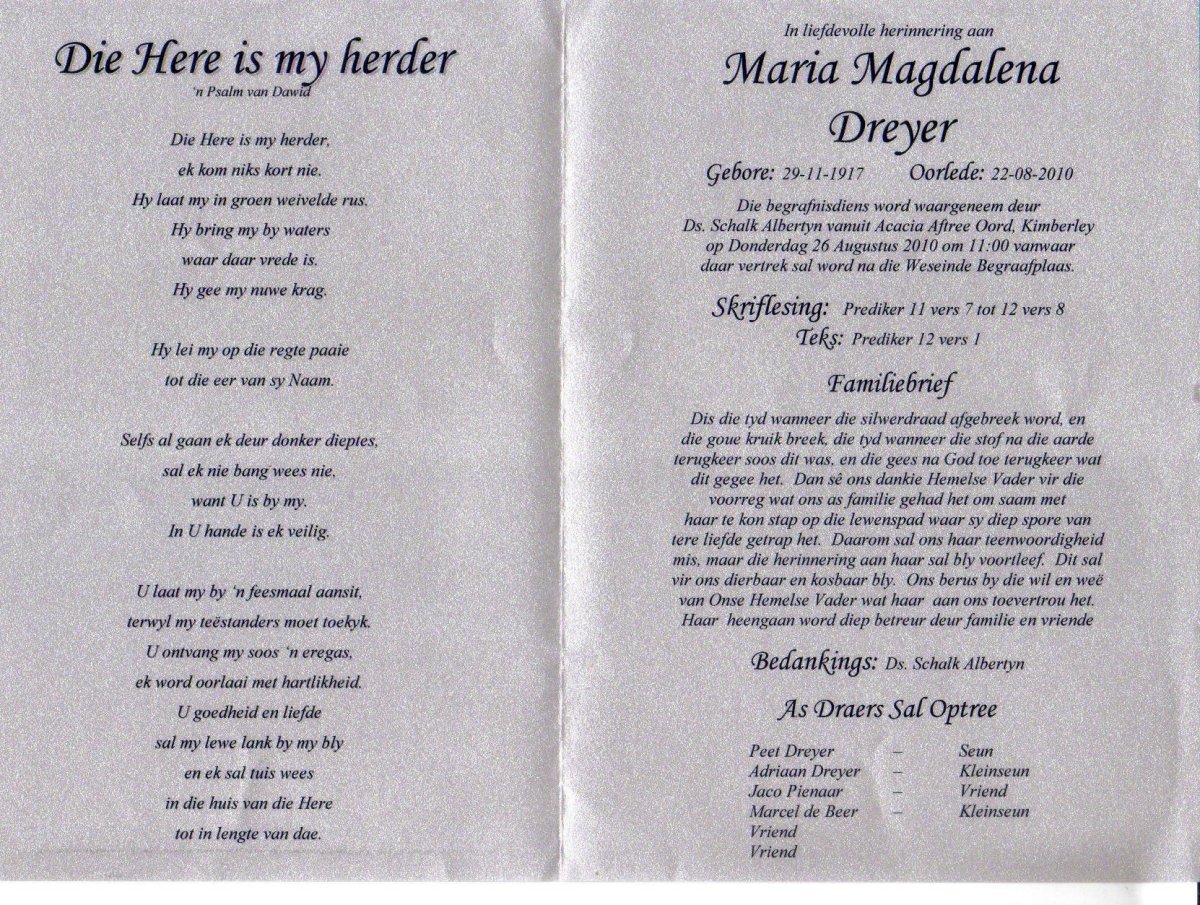 Die Here is my herder
'n Psalm van Dawid
Die Here is my herder,
ek kom niks kort nie.
Hy laat my in groen weivelde rus.
Hy bring my by waters
waar daar vrede is.
Hy gee my nuwe krag.
Hy lei my op die regte paaie
tot die eer van sy Naam.
Selfs al gaan ek deur donker dieptes,
sal ek nie bang wees nie,
want U is by my.
In U hande is ek veilig.
U laat my by 'n feesmaal aansit,
terwyl my teëstanders moet toekyk.
U ontvang my soos 'n eregas,
ek word oorlaai met hartlikheid.
U goedheid en liefde
sal my lewe lank by my bly
en ek sal tuis wees
in die huis van die Here
tot in lengte van dae.
In liefdevolle herinnering aan
Maria Magdalena
Dreyer
Gebore: 29-11-1917 Oorlede: 22-08-2010
Die begrafnisdiens word waargeneem deur
Ds. Schalk Albertyn vanuit Acacia Aftree Oord, Kimberley
op Donderdag 26 Augustus 2010 om 11:00 vanwaar
daar vertrek sal word na die Weseinde Begraafplaas.
Skriflesing: Prediker 11 vers 7 tot 12 vers 8
Teks: Prediker 12 vers 1
Familiebrief
Dis die tyd wanneer die silwerdraad afgebreek word, en
die goue kruik breek, die tyd wanneer die stof na die aarde
terugkeer soos dit was, en die gees na God toe terugkeer wat
dit gegee het. Dan sê ons dankie Hemelse Vader vir die
voorreg wat ons as familie gehad het om saam met
haar te kon stap op die lewenspad waar sy diep spore van
tere liefde getrap het. Daarom sal ons haar teenwoordigheid
mis, maar die herinnering aan haar sal bly voortleef. Dit sal
vir ons dierbaar en kosbaar bly. Ons berus by die wil en weë
van Onse Hemelse Vader wat haar aan ons toevertrou het.
Haar heengaan word diep betreur deur familie en vriende
Bedankings: Ds. Schalk Albertyn
As Draers Sal Optree
Peet Dreyer – Seun
Adriaan Dreyer – Kleinseun
Jaco Pienaar – Vriend
Marcel de Beer – Kleinseun
Vriend
Vriend